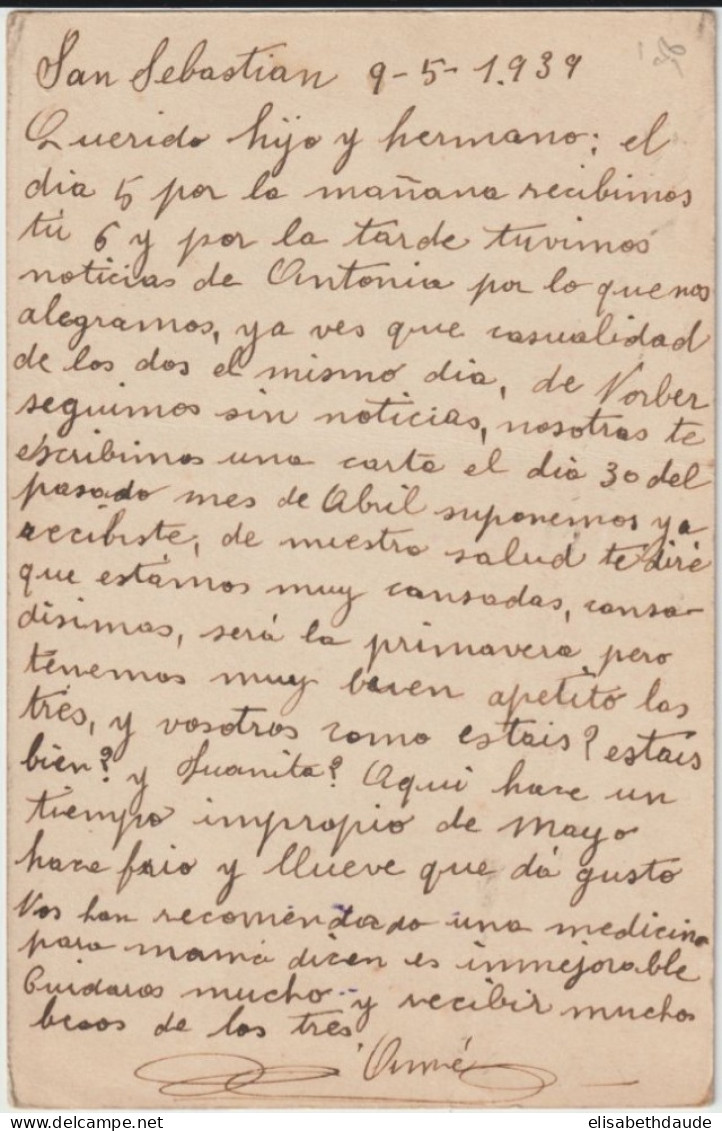 San Sebastian 9-5-1.939
Querido hijo y hermano; el
dia 5 por la mañana recibimos
tú 6 y por la tarde tuvimos
noticias de Antonia por lo que nos
alegramos, ya ves que casualidad
de los dos el mismo dia, de Norber
seguimos sin noticias, nosotras te
escribimos una carta el dia 30 del
pasado mes de Abril suponemos ya
recibiste, de nuestra salud te diré
que estámos muy cansadas, cansa-
disimas, será la primavera pero
tenemos muy buen apetito las
trés, y vosotros como estais? estais
bien? y Juanita? Aqui hace un
tiempo impropio de Mayo
hace frio y llueve que dá gusto
Nos han recomendado una medicina
para mamá dicen es inmejorable
Cuidaros mucho y recibir muchos
besos de las trés
elisabethdaude